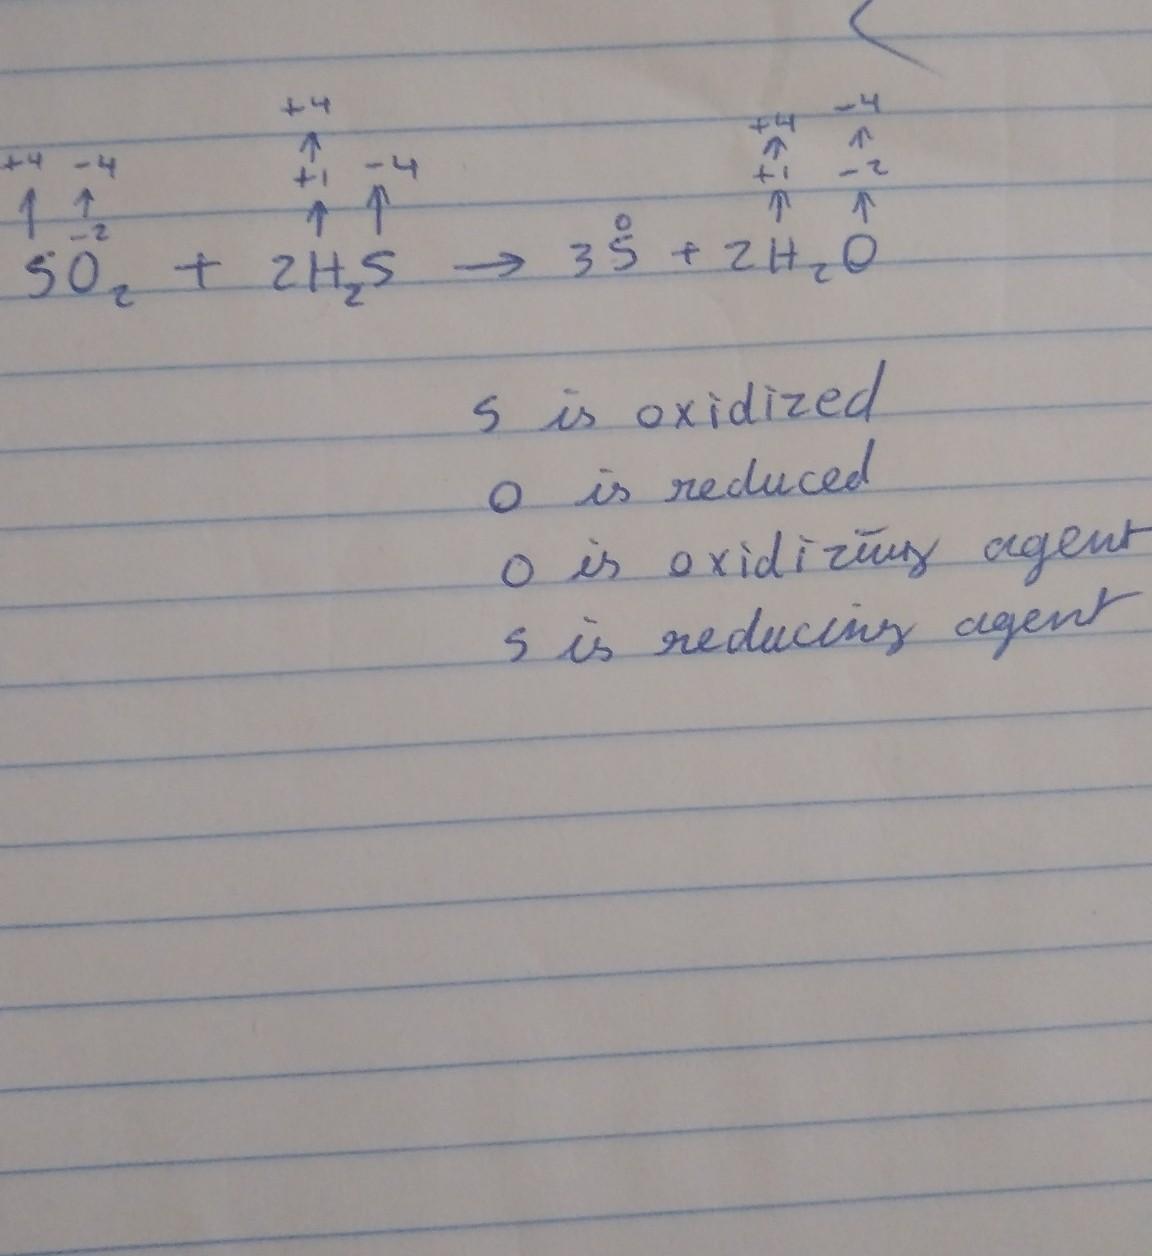 +4 +4 -4
+4 -4 +1 -4 +1 -2
-2 0
SO2 + 2H2S → 3S + 2H2O
S is oxidized
O is reduced
O is oxidizing agent
S is reducing agent